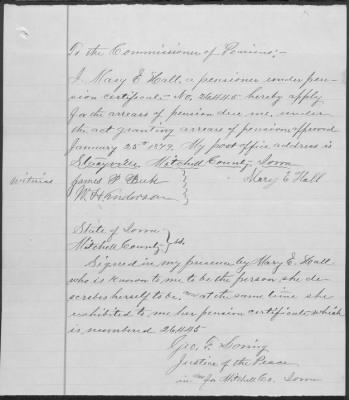 To the Commissioner of Pensions:-
I Mary E Hall, a pensioner under pen-
sion certificate No. 26445 hereby apply
for the arrears of pension due me, under
the act granting arrears of pension approved
January 25th 1879. My post office address is
Stacyville, Mitchell County Iowa
witness James F Mary E Hall
W. H. Anderson
State of Iowa
Mitchell County ss.
Signed in my presence by Mary E. Hall
who is known to me to be the person she de-
scribes herself to be, and at the same time she
exhibited to me her pension certificate which
is numbered 26445
Geo. F.
Justice of the Peace
in and for Mitchell Co. Iowa